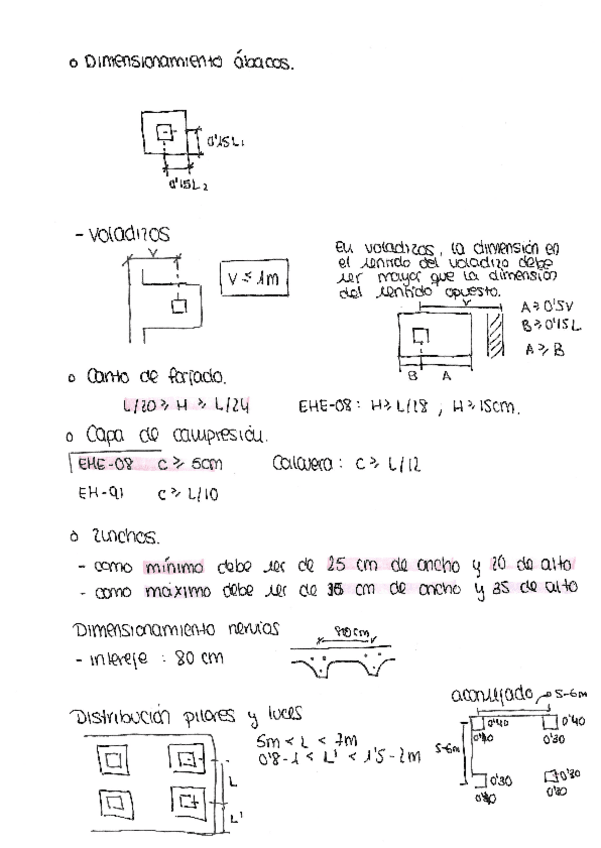 o Dimensionamiento ábacos.
0'15L1
0'15L2
- voladizos
V
V ≤ 1m
En voladizos, la dimensión en
el sentido del voladizo debe
ser mayor que la dimensión
del sentido opuesto.
V
A ≥ 0'5V
B ≥ 0'15L
A ≥ B
B A
o Canto de forjado.
L/20 ≥ H ≥ L/24 EHE-08: H ≥ L/28 ; H ≥ 15cm.
o Capa de compresión.
EHE-08 C ≥ 5cm Calavera: C ≥ L/12
EH-91 C ≥ L/10
o Zunchos.
- como mínimo debe ser de 25 cm de ancho y 20 de alto
- como máximo debe ser de cm de ancho y 35 de alto
Dimensionamiento nervios
80cm
- intereje : 80 cm
aconsejado
5-6m
Distribución pilares y luces
5m < L < 7m
0'8-1 < L' < 1'5-2m
L
L'
0'40 0'40
0'40 0'30
5-6m
0'30 0'30
0'30